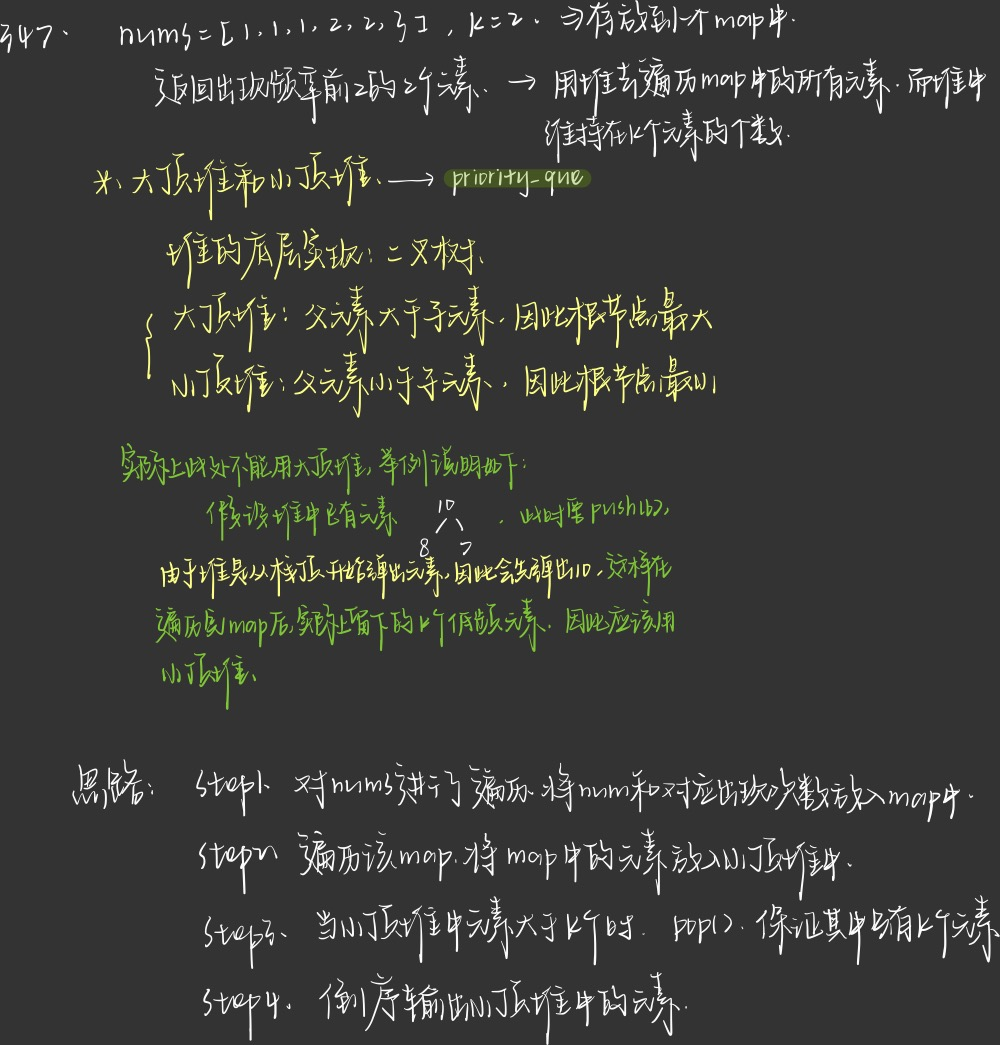 347. nums=[1,1,1,2,2,3], k=2. ⇒存放到一个map中.
返回出现频率前2的2个元素. → 用堆去遍历map中的所有元素.而堆中
维持在k个元素的个数.
*、大顶堆和小顶堆、→ priority_que
堆的底层实现:二叉树、
大顶堆:父元素大于子元素.因此根节点最大
小顶堆:父元素小于子元素、,因此根节点最小
实际上此处不能用大顶堆,举例说明如下:
假设堆中已有元素 10 ,此时需push(6),
8 7
由于堆是从栈顶开始弹出元素,因此会先弹出10,这样在
遍历完map后,实际上留下的k个低频元素.因此应该用
小顶堆、
思路: step1、对nums进行了遍历.将num和对应出现次数放入map中.
step2、遍历该map.将map中的元素放入小顶堆中.
step3、当小顶堆中元素大于k个时. pop().保证其中只有k个元素
step4、倒序输出小顶堆中的元素.